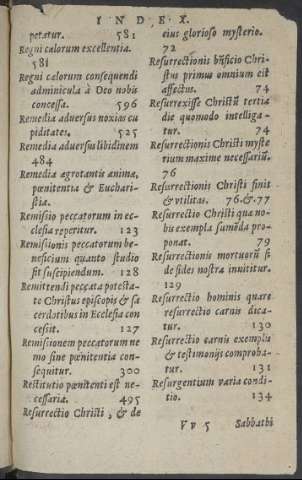 INDEX.
petatur. 581
Regni cælorum excellentia.
581
Regni cælorum consequendi
adminicula à Deo nobis
concessa. 596
Remedia aduersus noxias cu
piditates. 525
Remedia aduersus libidinem
484
Remedia ægrotantis animæ,
pœnitentia & Euchari-
stia.
Remissio peccatorum in ec-
clesia reperitur. 123
Remissionis peccatorum be-
neficium quanto studio
sit suscipiendum. 128
Remittendi peccata potesta-
tē Christus episcopis & sa
cerdotibus in Ecclesia con
cessit. 127
Remissionem peccatorum ne
mo sine pœnitentia con-
sequitur. 300
Restitutio pœnitenti est ne-
cessaria. 495
Resurrectio Christi, & de
eius glorioso mysterio.
72
Resurrectionis bñficio Chri-
stus primus omnium est
affectus. 74
Surrexisse Christū tertia
die quomodo intelliga-
tur. 74
Resurrectionis Christi myste
rium maxime necessariū.
76
Resurrectionis Christi finis
& vtilitas. 76.&.77
Resurrectio Christi quæ no-
bis exempla sumēda pro-
ponat. 79
Resurrectionis mortuorū si
de fides nostra innititur.
129
Resurrectio hominis quare
resurrectio carnis dica-
tur. 130
Resurrectio carnis exemplis
& testimonijs comproba-
tur. 131
Resurgentium varia condi-
tio. 134
Vv 5 Sabbathi